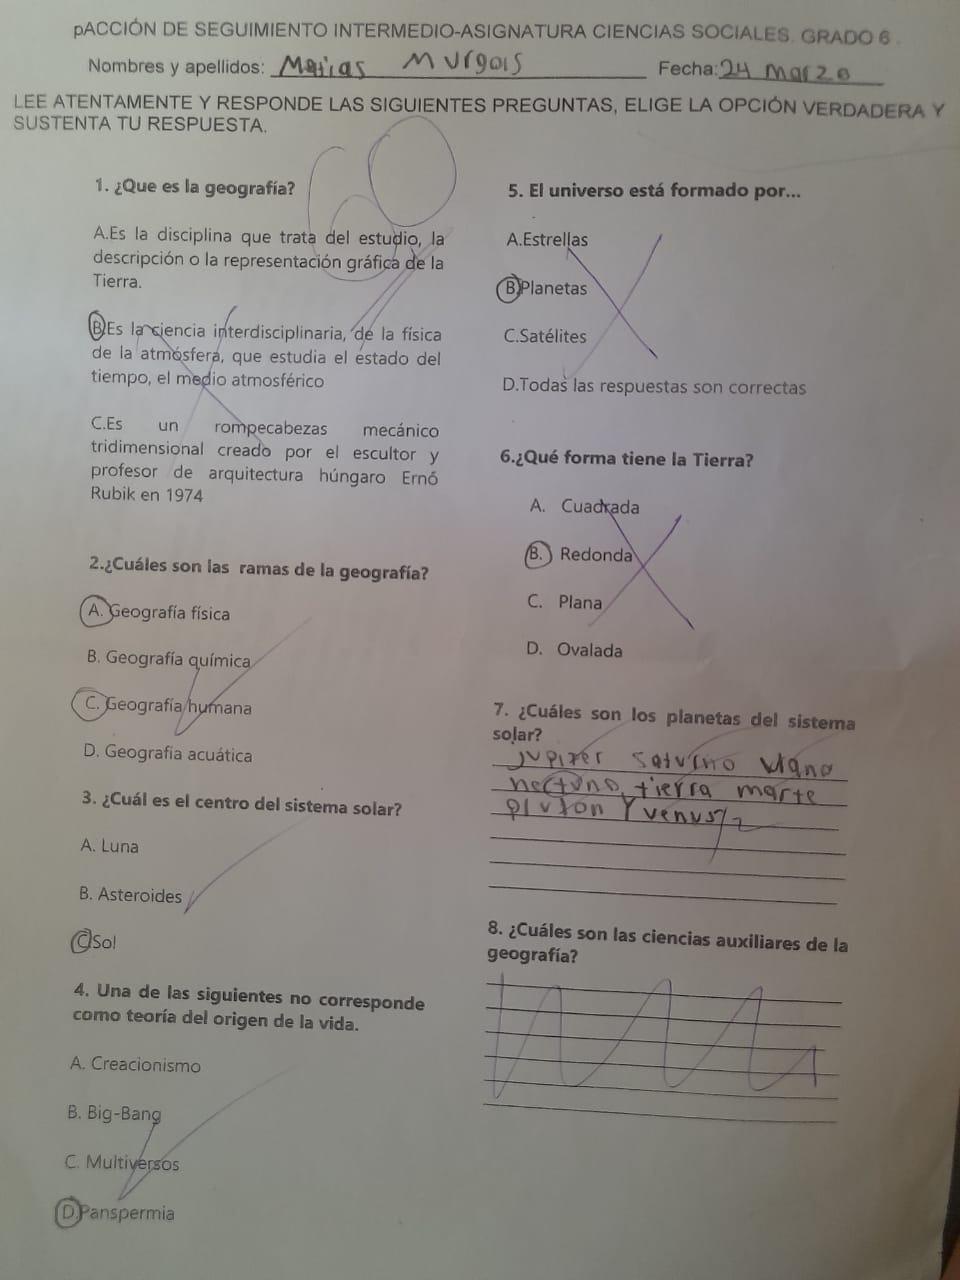 pACCIÓN DE SEGUIMIENTO INTERMEDIO-ASIGNATURA CIENCIAS SOCIALES. GRADO 6 .
Nombres y apellidos: Matias Murgois Fecha: 24 Marzo
LEE ATENTAMENTE Y RESPONDE LAS SIGUIENTES PREGUNTAS, ELIGE LA OPCIÓN VERDADERA Y
SUSTENTA TU RESPUESTA.
1. ¿Que es la geografía?
A.Es la disciplina que trata del estudio, la
descripción o la representación gráfica de la
Tierra.
B.Es la ciencia interdisciplinaria, de la física
de la atmósfera, que estudia el estado del
tiempo, el medio atmosférico
C.Es un rompecabezas mecánico
tridimensional creado por el escultor y
profesor de arquitectura húngaro Ernő
Rubik en 1974
2.¿Cuáles son las ramas de la geografía?
A. Geografía física
B. Geografía química
C. Geografía humana
D. Geografía acuática
3. ¿Cuál es el centro del sistema solar?
A. Luna
B. Asteroides
C.Sol
4. Una de las siguientes no corresponde
como teoría del origen de la vida.
A. Creacionismo
B. Big-Bang
C. Multiversos
D.Panspermia
5. El universo está formado por...
A.Estrellas
B.Planetas
C.Satélites
D.Todas las respuestas son correctas
6.¿Qué forma tiene la Tierra?
A. Cuadrada
B. Redonda
C. Plana
D. Ovalada
7. ¿Cuáles son los planetas del sistema
solar?
Jupiter saturno Urano
nectuno, tierra marte
pluton Y venus
8. ¿Cuáles son las ciencias auxiliares de la
geografía?